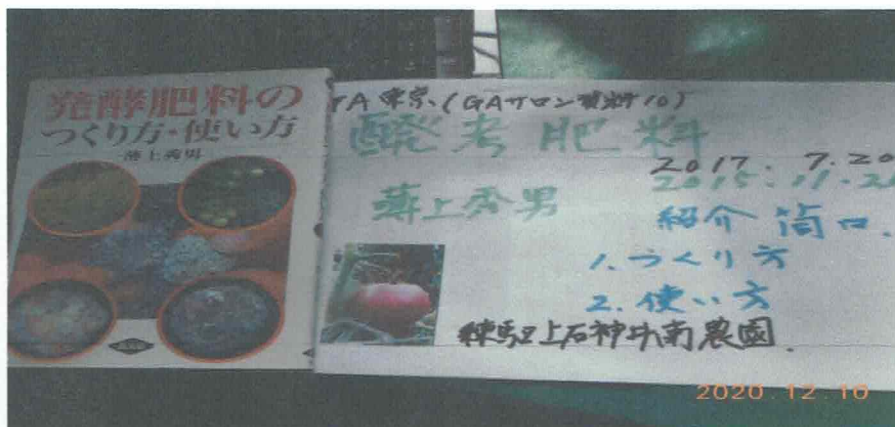 発酵肥料の
つくり方・使い方
薄上秀男
TA 東京、(GAサロン資料10)
醗考肥料
2017. 7.20
2015.11.2
薄上秀男
紹介 筒口.
1. つくり方
2. 使い方
練馬区上石神井南農園.
2020.12.10